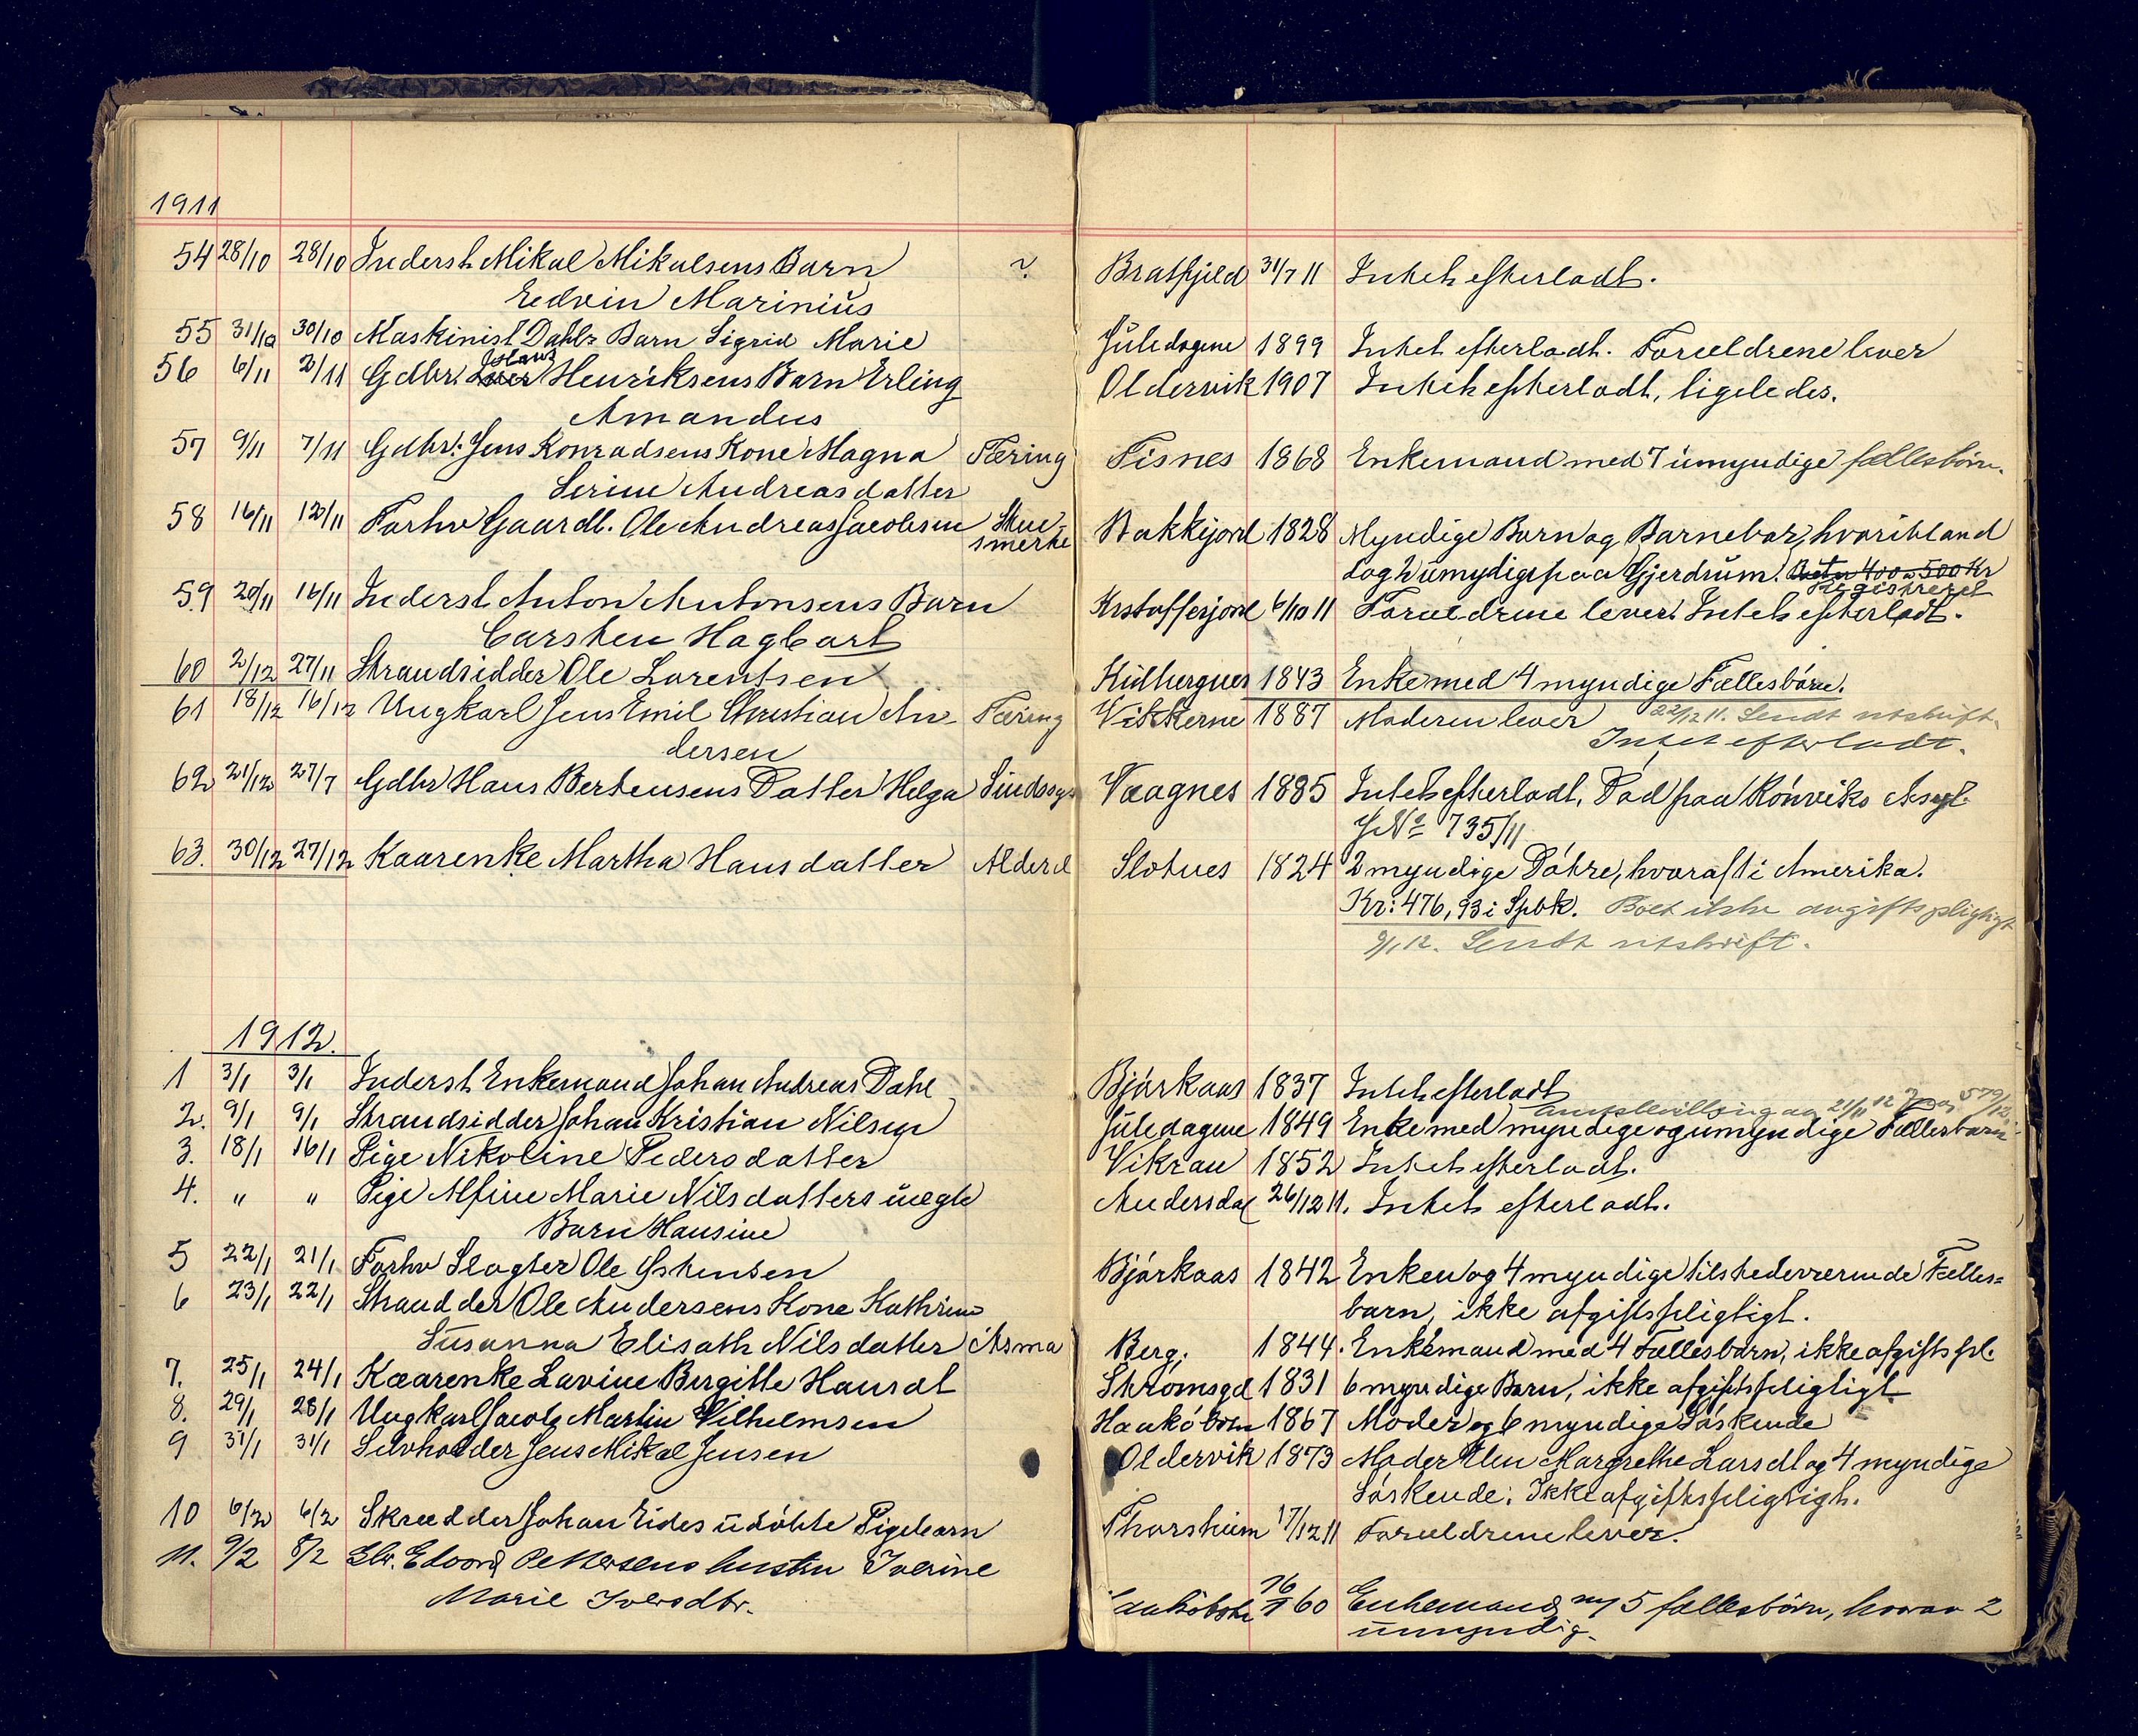 1911
54 28/10 28/10 Inderst Mikal Mikalsens Barn ? Bratfjeld 31/7 11 Intet efterladt.
Edvin Marinius
55 31/10 30/10 Maskinist Dahls Barn Sigrid Marie Juledagene 1899 Intet efterladt. Forældrene lever
56 6/11 2/11 Gdbr. Henriksens Barn Erling Oldervik 1907 Intet efterladt, ligeledes.
Amandus
57 9/11 7/11 Gdbr: Jens Konradsens Kone Magna Tæring Tisnes 1868 Enkemand med 7 umyndige fællesbörn.
Serine Andreasdatter
58 16/11 12/11 Forhv Gaardb. Ole Andreas Jacobsen Bakkejord 1828 Myndige Barn og Barnebarn, hvoribland
smerte dog 2 umydige paa Gjerdrum. 400 a 500 Kr
Registreret
59 20/11 16/11 Inderst Anton Antonsens Barn Kristoffersjord 6/10 11 Forældrene lever. Intet efterladt.
Carsten Hagbart
60 2/12 27/11 Strandsidder Ole Lorentsen 1843 Enke med 4 myndige Fællesbörn.
61 18/12 16/12 Ungkarl Jens Emil Christian An- Tæring Vikkerne 1887 Moderen lever 22/12 11. Sendt utskrift.
dersen Intet efterladt.
62 21/12 27/7 Gdbr Hans Bertensens Datter Helga Sindssyg Vaagnes 1885 Intet efterladt, Död paa Rönviks Asyl.
J№ 735/11
63. 30/12 27/12 Kaarenke Martha Hansdatter Alderd Slotnes 1824 2 myndige Dötre, hvoraf 1 i Amerika.
Kr: 476,93 i Spbk. Boet ikke avgiftspligtigt
9/1 12. Sendt utskrift.
1912.
1 3/1 3/1 Inderst Enkemand Johan Andreas Dahl Bjórkaas 1837 Intet efterladt
21/11 12 579/12
2. 9/1 9/1 Strandsidder Johan Kristian Nilsen Juledagene 1849 Enke med myndige og umyndige Fællesbarn
3. 18/1 16/1 Pige Nikoline Pedersdatter Vikran 1852 Intet efterladt.
4. " " Pige Alfine Marie Nilsdatters uægte Andersdal 26/12 11. Intet efterladt.
Barn Hansine
5 22/1 21/1 Forhv Slagter Ole Estensen Bjórkaas 1842 Enken og 4 myndige tilstedeværende Fælles=
barn, ikke afgiftspligtigt.
6 23/1 22/1 Strand der Ole Andersens Kone Kathrine
Susanna Elisath Nilsdatter Asma Berg. 1844. Enkemand med 4 Fællesbörn, ikke afgiftspl.
7. 25/1 24/1 Kaarenke Lavine Birgitte Hansdt Strömsgd 1831 6 myndige Barn, ikke afgiftspligtigt
8. 29/1 28/1 Ungkarl Jacob Martin Vilhelmsen Haakö 1867 Moder og 6 myndige Söskende
9 31/1 31/1 Selvholder Jens Mikal Jensen Oldervik 1873 Moder Elen Margrethe Larsdt og 4 myndige
Söskende. Ikke afgiftspligtigt.
10 6/2 6/2 Skrædder Johan Eides udöbte Pigebarn Thorsheim 17/12 11 Forældrene lever.
11. 9/2 8/2 Gbr. Edvard Pettersens hustru Iverine 60 Enkemand m/ 5 fællesbörn, hvorav 2
Marie Iversdtr. umyndig.